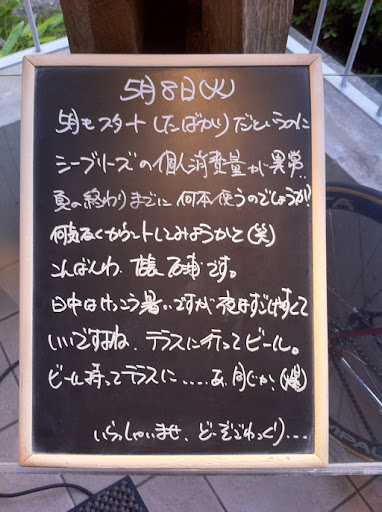 5月8日(火)
5月もスタートしたばかりだというのに
シーブリーズの個人消費量が異常。
夏の終わりまでに何本使うのでしょうか?
何気なくカウントしてみようかと(笑)
こんばんわ、です。
日中はけっこう暑いですが、夜はすごしやすくて
いいですね、テラスに行ってビール。
ビール持ってテラスに.....あ、同じか、(爆)
いらっしゃいませ、どーぞごゆっくり...